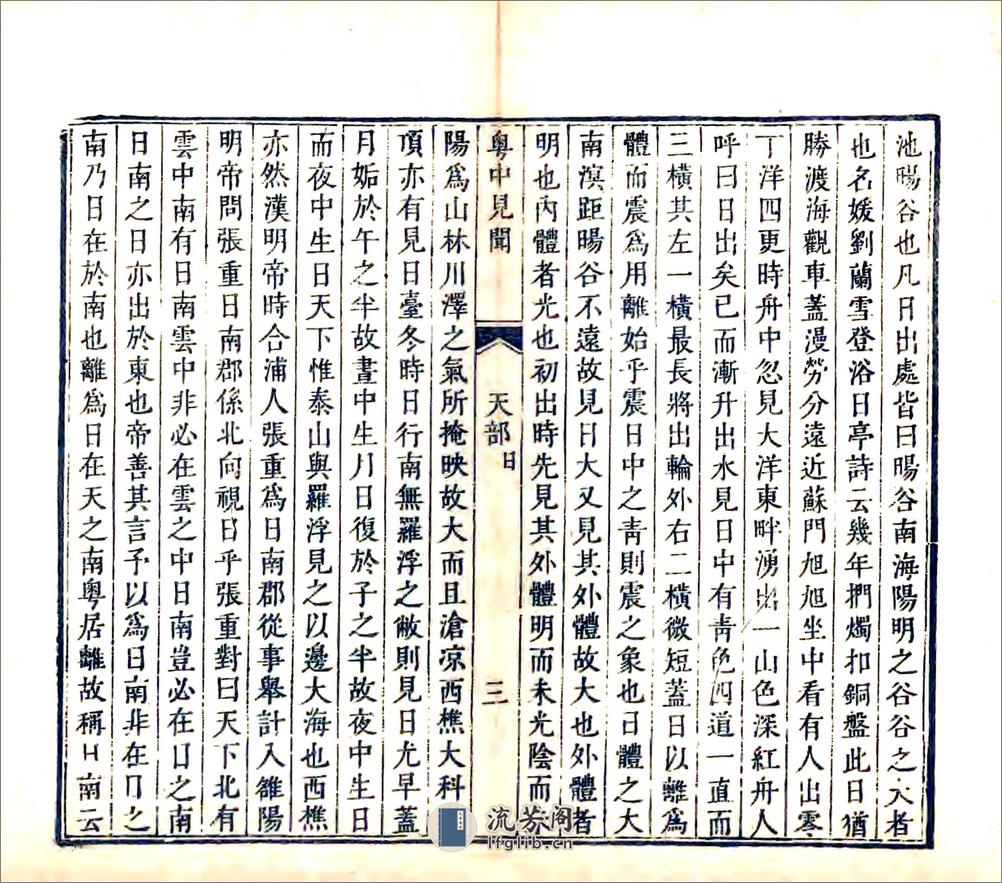 池暘谷也凡日出處皆曰暘谷南海陽明之谷谷之大者
也名媛劉蘭雪登浴日亭詩云幾年捫燭扣銅盤此日猶
勝渡海觀車蓋漫勞分遠近蘇門旭旭坐中看有人出零
丁洋四更時舟中忽見大洋東畔湧出一山色深紅舟人
呼曰日出矣已而漸升出水見日中有青色四道一直而
三橫其左一橫最長將出輪外右二橫微短蓋日以離為
體而震為用離始乎震日中之青則震之象也日體之大
南溟距暘谷不遠故見日大又見其外體故大也外體者
明也內體者光也初出時先見其外體明而未光陰而
粵中見聞 天部 日 三
陽為山林川澤之氣所掩映故大而且滄凉西樵大科
頂亦有見日臺冬時日行南無羅浮之敝則見日尤早蓋
月姤於午之半故晝中生月日復於子之半故夜中生日
而夜中生日天下惟泰山與羅浮見之以邊大海也西樵
亦然漢明帝時合浦人張重為日南郡從事舉計入雒陽
明帝問張重日南郡係北向視日乎張重對曰天下北有
雲中南有日南雲中非必在雲之中日南豈必在日之南
日南之日亦出於東也帝善其言予以為日南非在日之
南乃日在於南也離為日在天之南粵居離故稱日南云
流芬阁
lfglib.cn